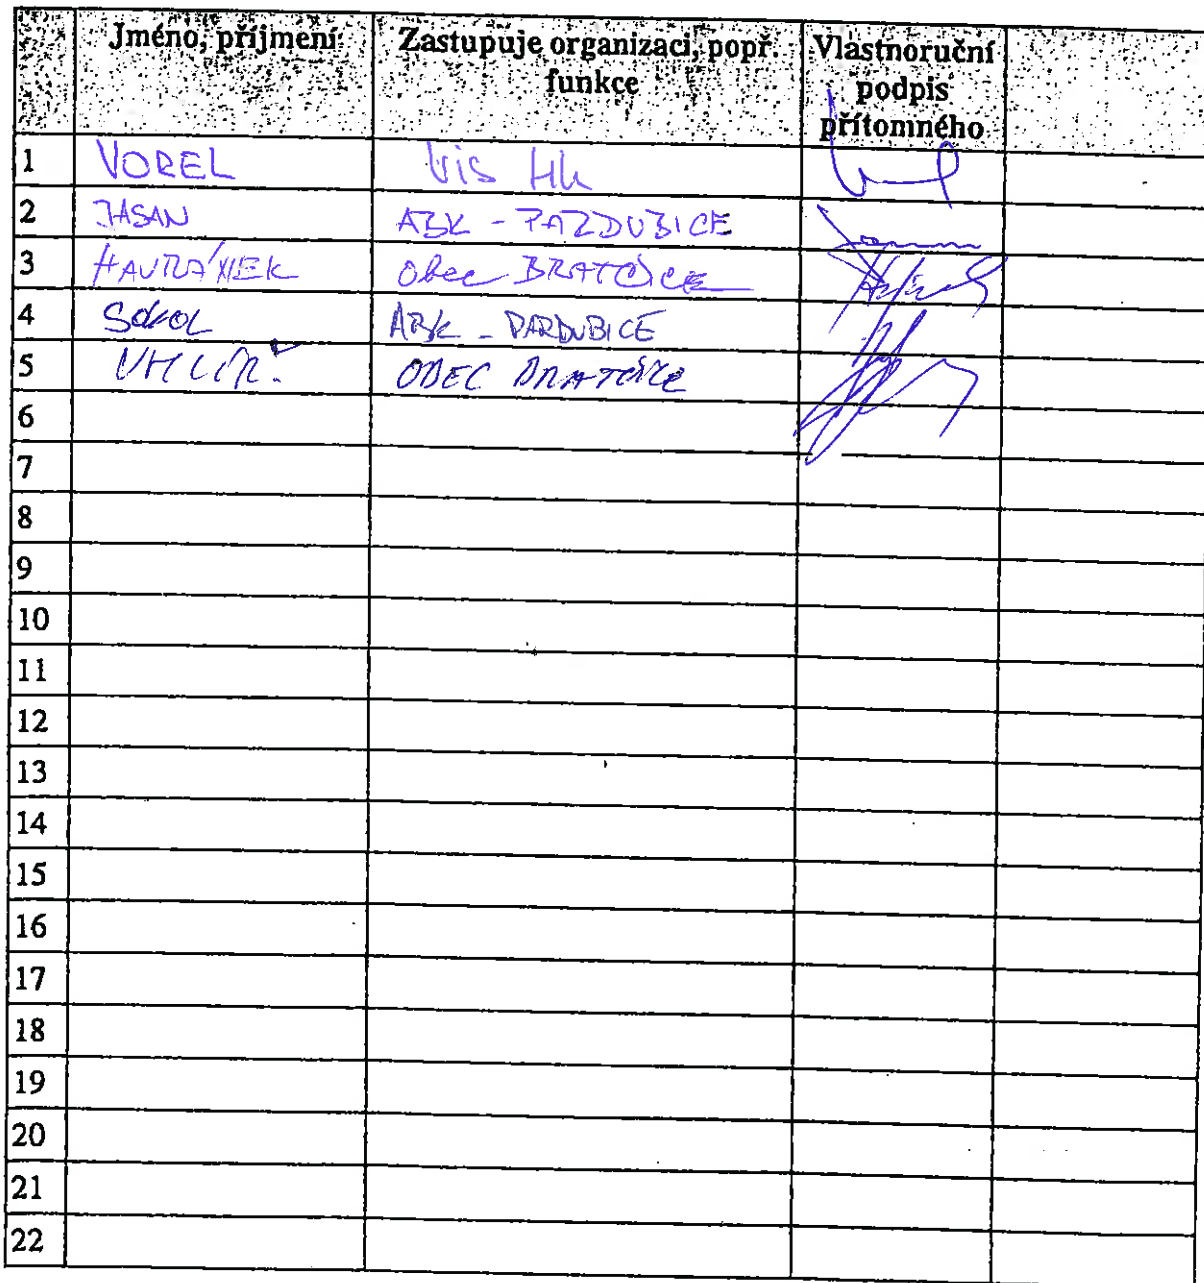 Jméno, příjmení Zastupuje organizaci, popř. Vlastnoruční
funkce podpis
přítomného
1 VOREL Vis Hk
2 JASAN ABK - PARDUBICE
3 HAVRÁNEK Obec BRATČICE
4 SOKOL ABK - PARDUBICE
5 UHLÍŘ OBEC BRATČICE
6
7
8
9
10
11
12
13
14
15
16
17
18
19
20
21
22